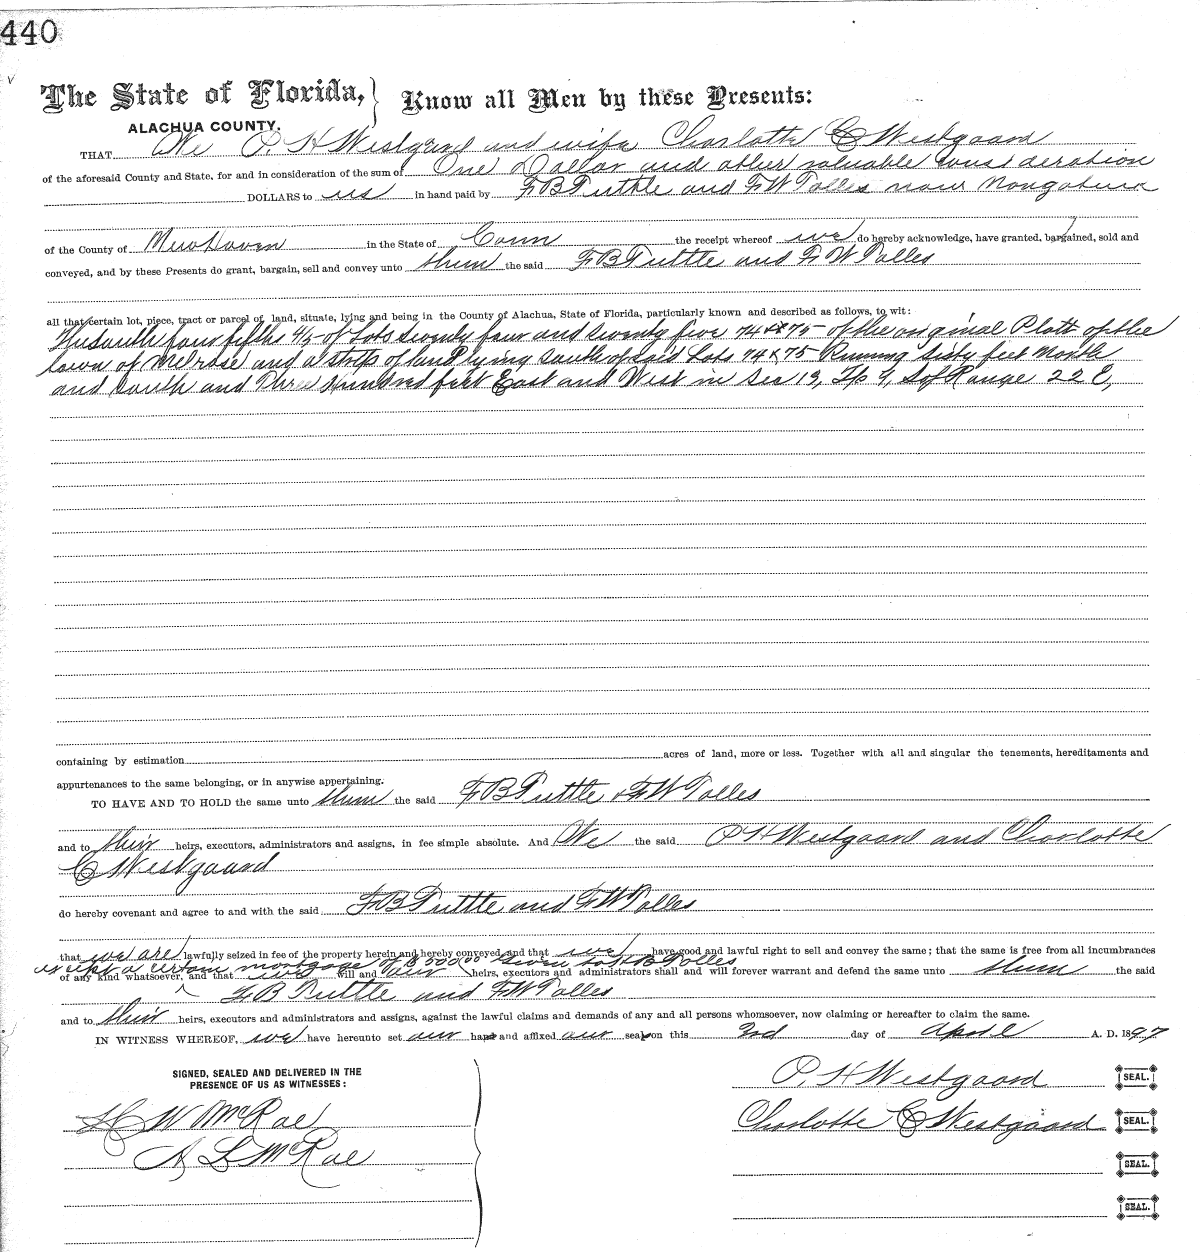 440
The State of Florida, } Know all Men by these Presents:
ALACHUA COUNTY.
THAT We P. H Westgaard and wife Charlotte C Westgaard
of the aforesaid County and State, for and in consideration of the sum of One Dollar and other valuable consideration
DOLLARS to us in hand paid by F B Tuttle and F W Tolles now
of the County of New Haven in the State of Conn the receipt whereof we do hereby acknowledge, have granted, bargained, sold and
conveyed, and by these Presents do grant, bargain, sell and convey unto them the said F B Tuttle and F W Tolles
all that certain lot, piece, tract or parcel of land, situate, lying and being in the County of Alachua, State of Florida, particularly known and described as follows, to wit:
The south four fifths 4/5 of Lots seventy four and seventy five 74 & 75 of the original Platt of the
town of Melrose and a strip of land lying south of said Lots 74 & 75 Running Sixty feet North
and South and Three Hundred feet East and West in Sec 19, Tp 9, S of Range 22 E,
containing by estimation acres of land, more or less. Together with all and singular the tenements, hereditaments and
appurtenances to the same belonging, or in anywise appertaining.
TO HAVE AND TO HOLD the same unto them the said F B Tuttle & F W Tolles
and to their heirs, executors, administrators and assigns, in fee simple absolute. And We the said P H Westgaard and Charlotte
C Westgaard
do hereby covenant and agree to and with the said F B Tuttle and F W Tolles
that we are lawfully seized in fee of the property herein and hereby conveyed and that we have good and lawful right to sell and convey the same; that the same is free from all incumbrances
except a certain mortgage of given to F B Tolles
of any kind whatsoever, and that we will and our heirs, executors and administrators shall and will forever warrant and defend the same unto them the said
F B Tuttle and F W Tolles
and to their heirs, executors and administrators and assigns, against the lawful claims and demands of any and all persons whomsoever, now claiming or hereafter to claim the same.
IN WITNESS WHEREOF, we have hereunto set our hand and affixed our seal on this 3rd day of April A. D. 1897
SIGNED, SEALED AND DELIVERED IN THE
PRESENCE OF US AS WITNESSES:
P. H Westgaard SEAL.
H W McRae
Charlotte C Westgaard SEAL.
A L McRae
SEAL.
SEAL.